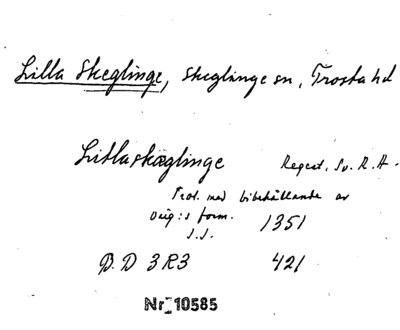 Lilla Skeglinge, Skeglinge sn, Frosta hd
Litlaskæglinge Regest. Sv. R.A.
Trol. med bibehållande av
orig:s form. 1351
S.S.
B. D 3 R3 421
Nr 10585